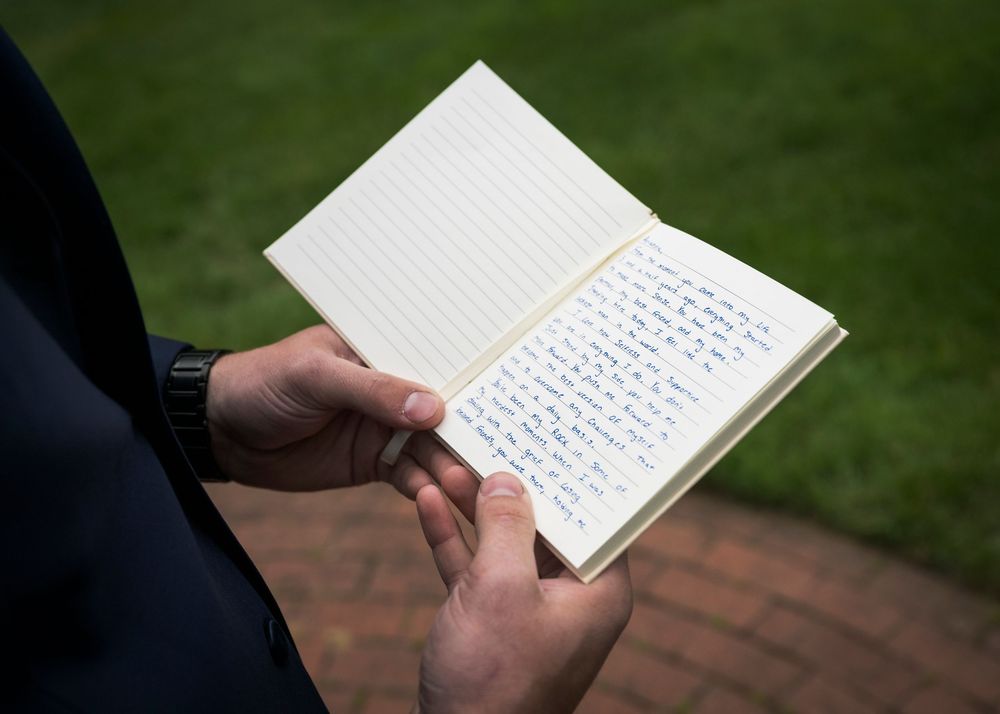 From the moment you came into my life
and a half years ago, everything started
to make more sense. You have been my
my best friend, and my home.
here today, I feel like the
man in the world.
I love how selfless and supportive
you are in everything I do. You don't
just stand by my side you help me
move forward. You push me forward to
become the best version of myself
to overcome any challenges that
happen on a daily basis.
You've been my ROCK in some of
my hardest moments. When I was
dealing with the grief of losing
friends, you were there, holding me